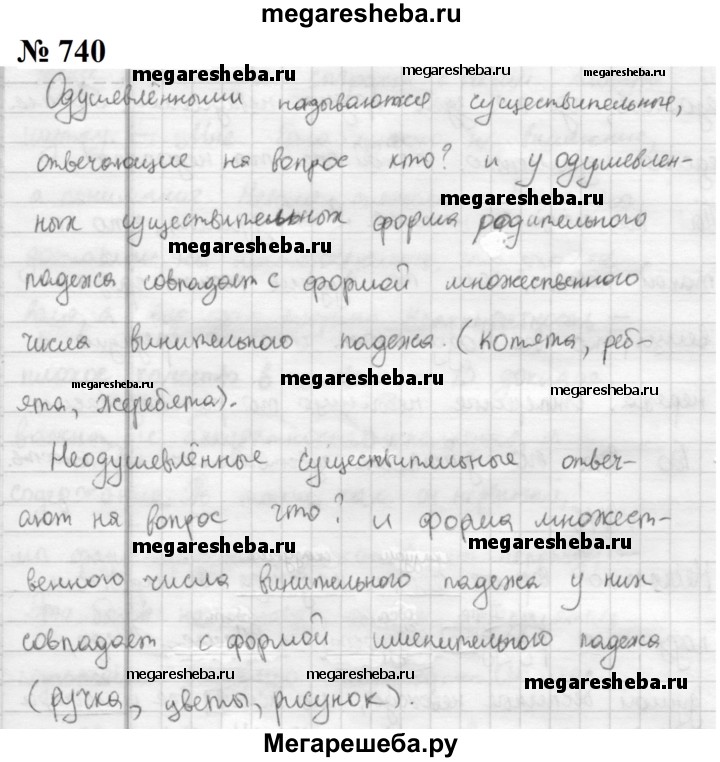 megaresheba.ru
№ 740
megaresheba.ru megaresheba.ru megaresheba.ru
Одушевлёнными называются существительные,
отвечающие на вопрос кто? и у одушевлен-
megaresheba.ru
ных существительных форма родительного
megaresheba.ru
падежа совпадает с формой множественного
числа винительного падежа. (Котята, реб-
megaresheba.ru megaresheba.ru megaresheba.ru
ята, жеребята).
Неодушевлённые существительные отвеч-
ают на вопрос что? и форма множест-
megaresheba.ru megaresheba.ru
венного числа винительного падежа у них
совпадает с формой именительного падежа
megaresheba.ru megaresheba.ru megaresheba.ru
(ручка, цветы, рисунок).
Мегарешеба.ру